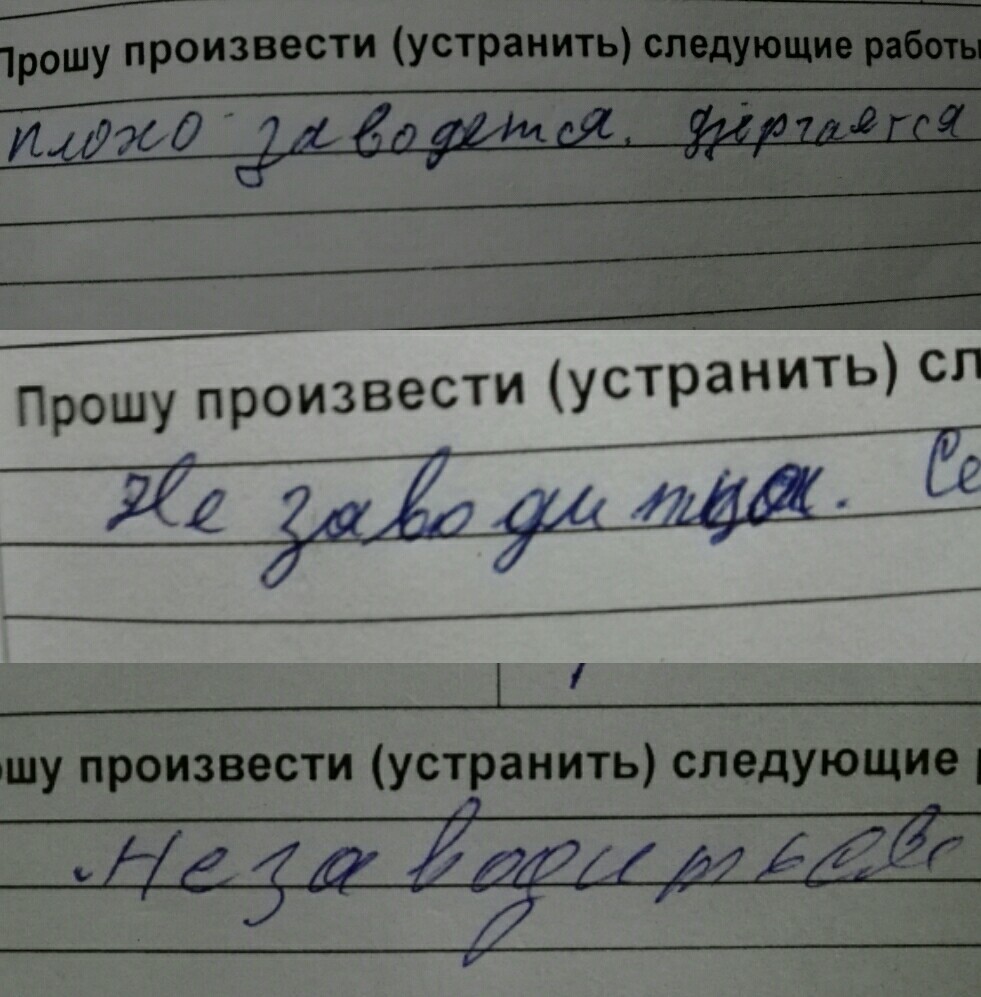 Прошу произвести (устранить) следующие работы
плохо заводется. дёргается
Прошу произвести (устранить) сл
Не заводитца. Се
ошу произвести (устранить) следующие р
Незаводиться